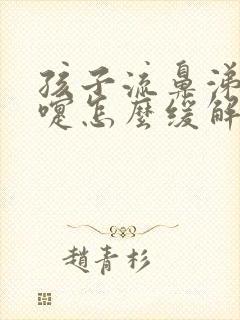 孩子流鼻涕
嚏怎麼緩解
趙青杉